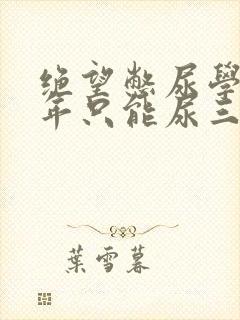 绝望憋尿學
年只能尿三
葉雪暮